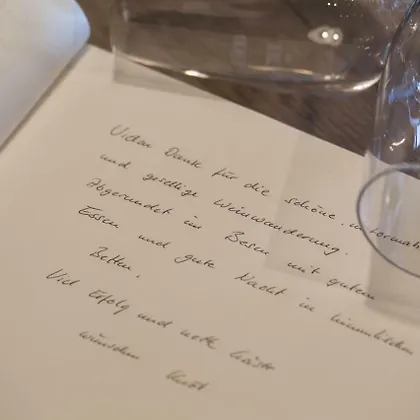 Vielen Dank für die schöne, informati
und gesellige Weinwanderung.
Abgerundet im Besen mit gutem
Essen und gute Nacht in himmlischen
Betten.
Viel Erfolg und nette Gäste
wünschen